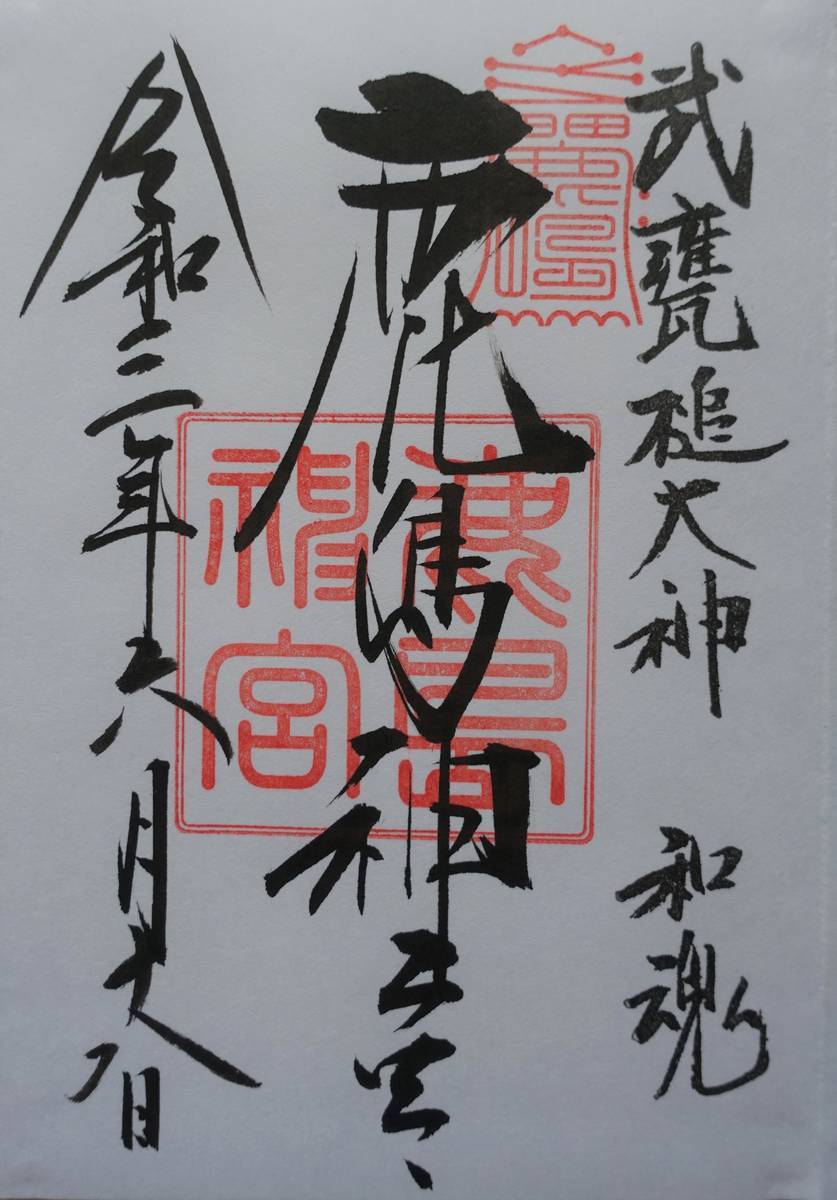 武甕槌大神 和魂
鹿島神
令和三年六月十八日
鹿島
神宮